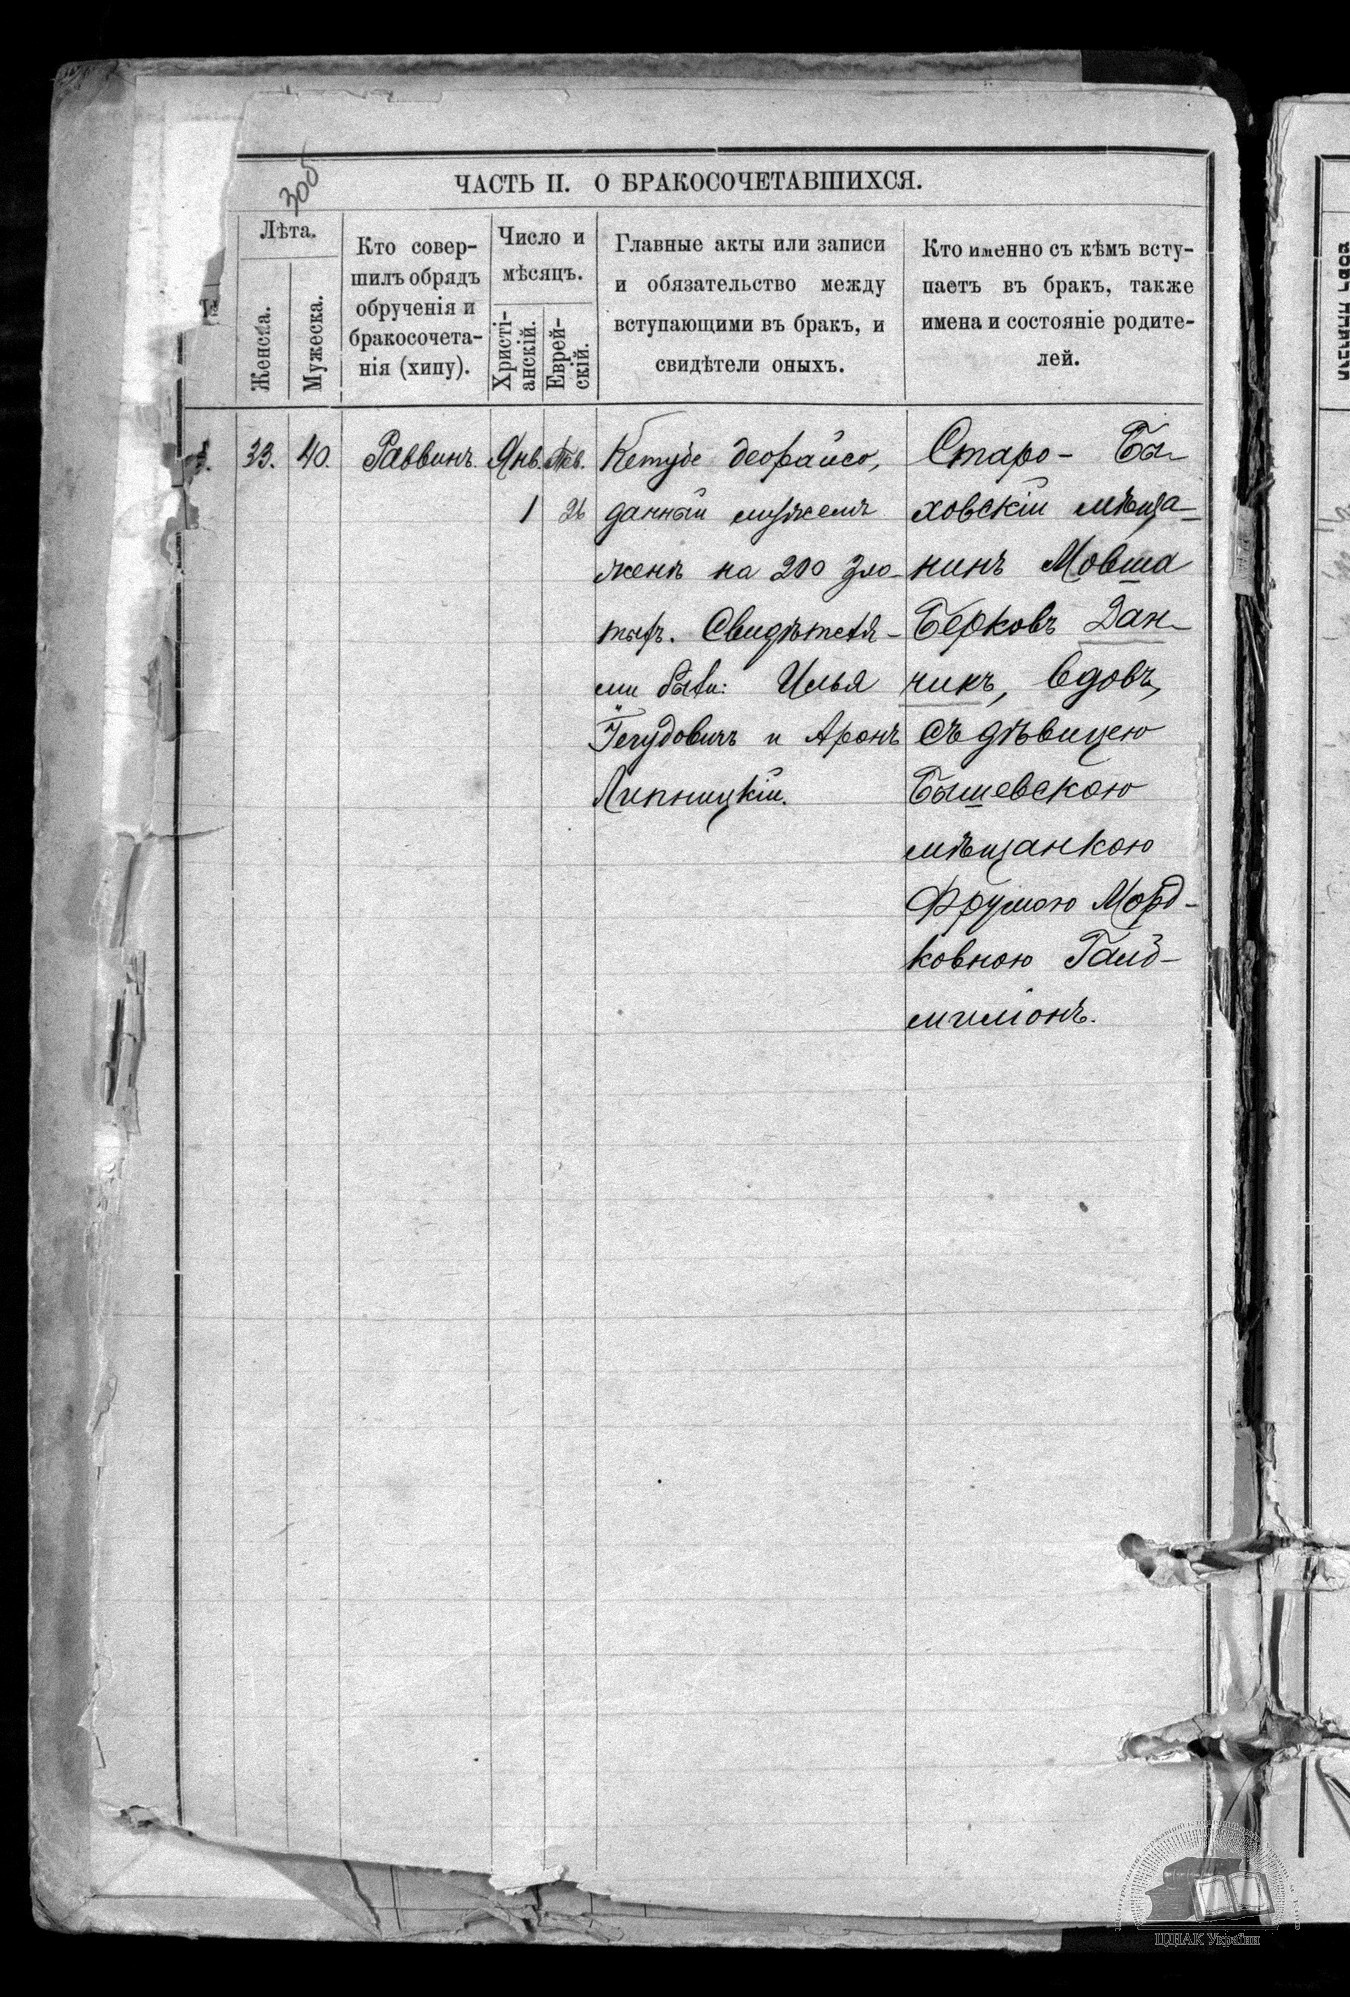 305
ЧАСТЬ II. О БРАКОСОЧЕТАВШИХСЯ.
Лѣта.
Женска.
Мужеска.
Кто совер-
шилъ обрядъ
обрученія и
бракосочета-
нія (хипу).
Число и
мѣсяцъ.
Христі-
анскій.
Еврей-
скій.
Главные акты или записи
и обязательство между
вступающими въ бракъ, и
свидѣтели оныхъ.
Кто именно съ кѣмъ всту-
паетъ въ бракъ, также
имена и состояніе родите-
лей.
1.
33.
40.
Раввинъ.
Янв.
1
Тев.
26
Кетубе деорайсо,
данный мужемъ
женѣ на 200 зло-
тых. Свидѣтеля-
ми были: Илья
Іегудовичъ и Аронъ
Липницкій.
Старо-Бы-
ховскій мѣща-
нинъ Мовша
Берковъ Дан-
чикъ, вдовъ,
съ дѣвицею
Бышевскою
мѣщанкою
Фрумою Морд-
ковною Галд-
милионъ.
ЦДІАК України